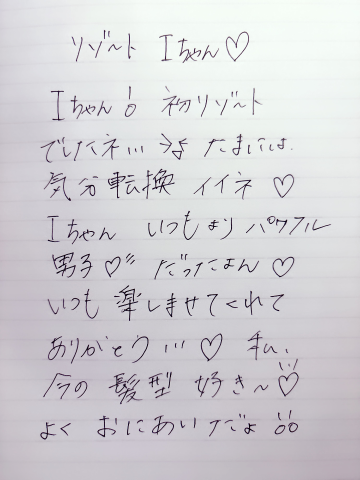 リゾート Iちゃん♡
Iちゃん 初リゾート
でしたネ… たまには
気分転換 イイネ ♡
Iちゃん いつもより パワフル
男子♡ だったよん ♡
いつも 楽しませてくれて
ありがとう…♡ 私、
今の 髪型 好き〜♡
よく おにあいだよ